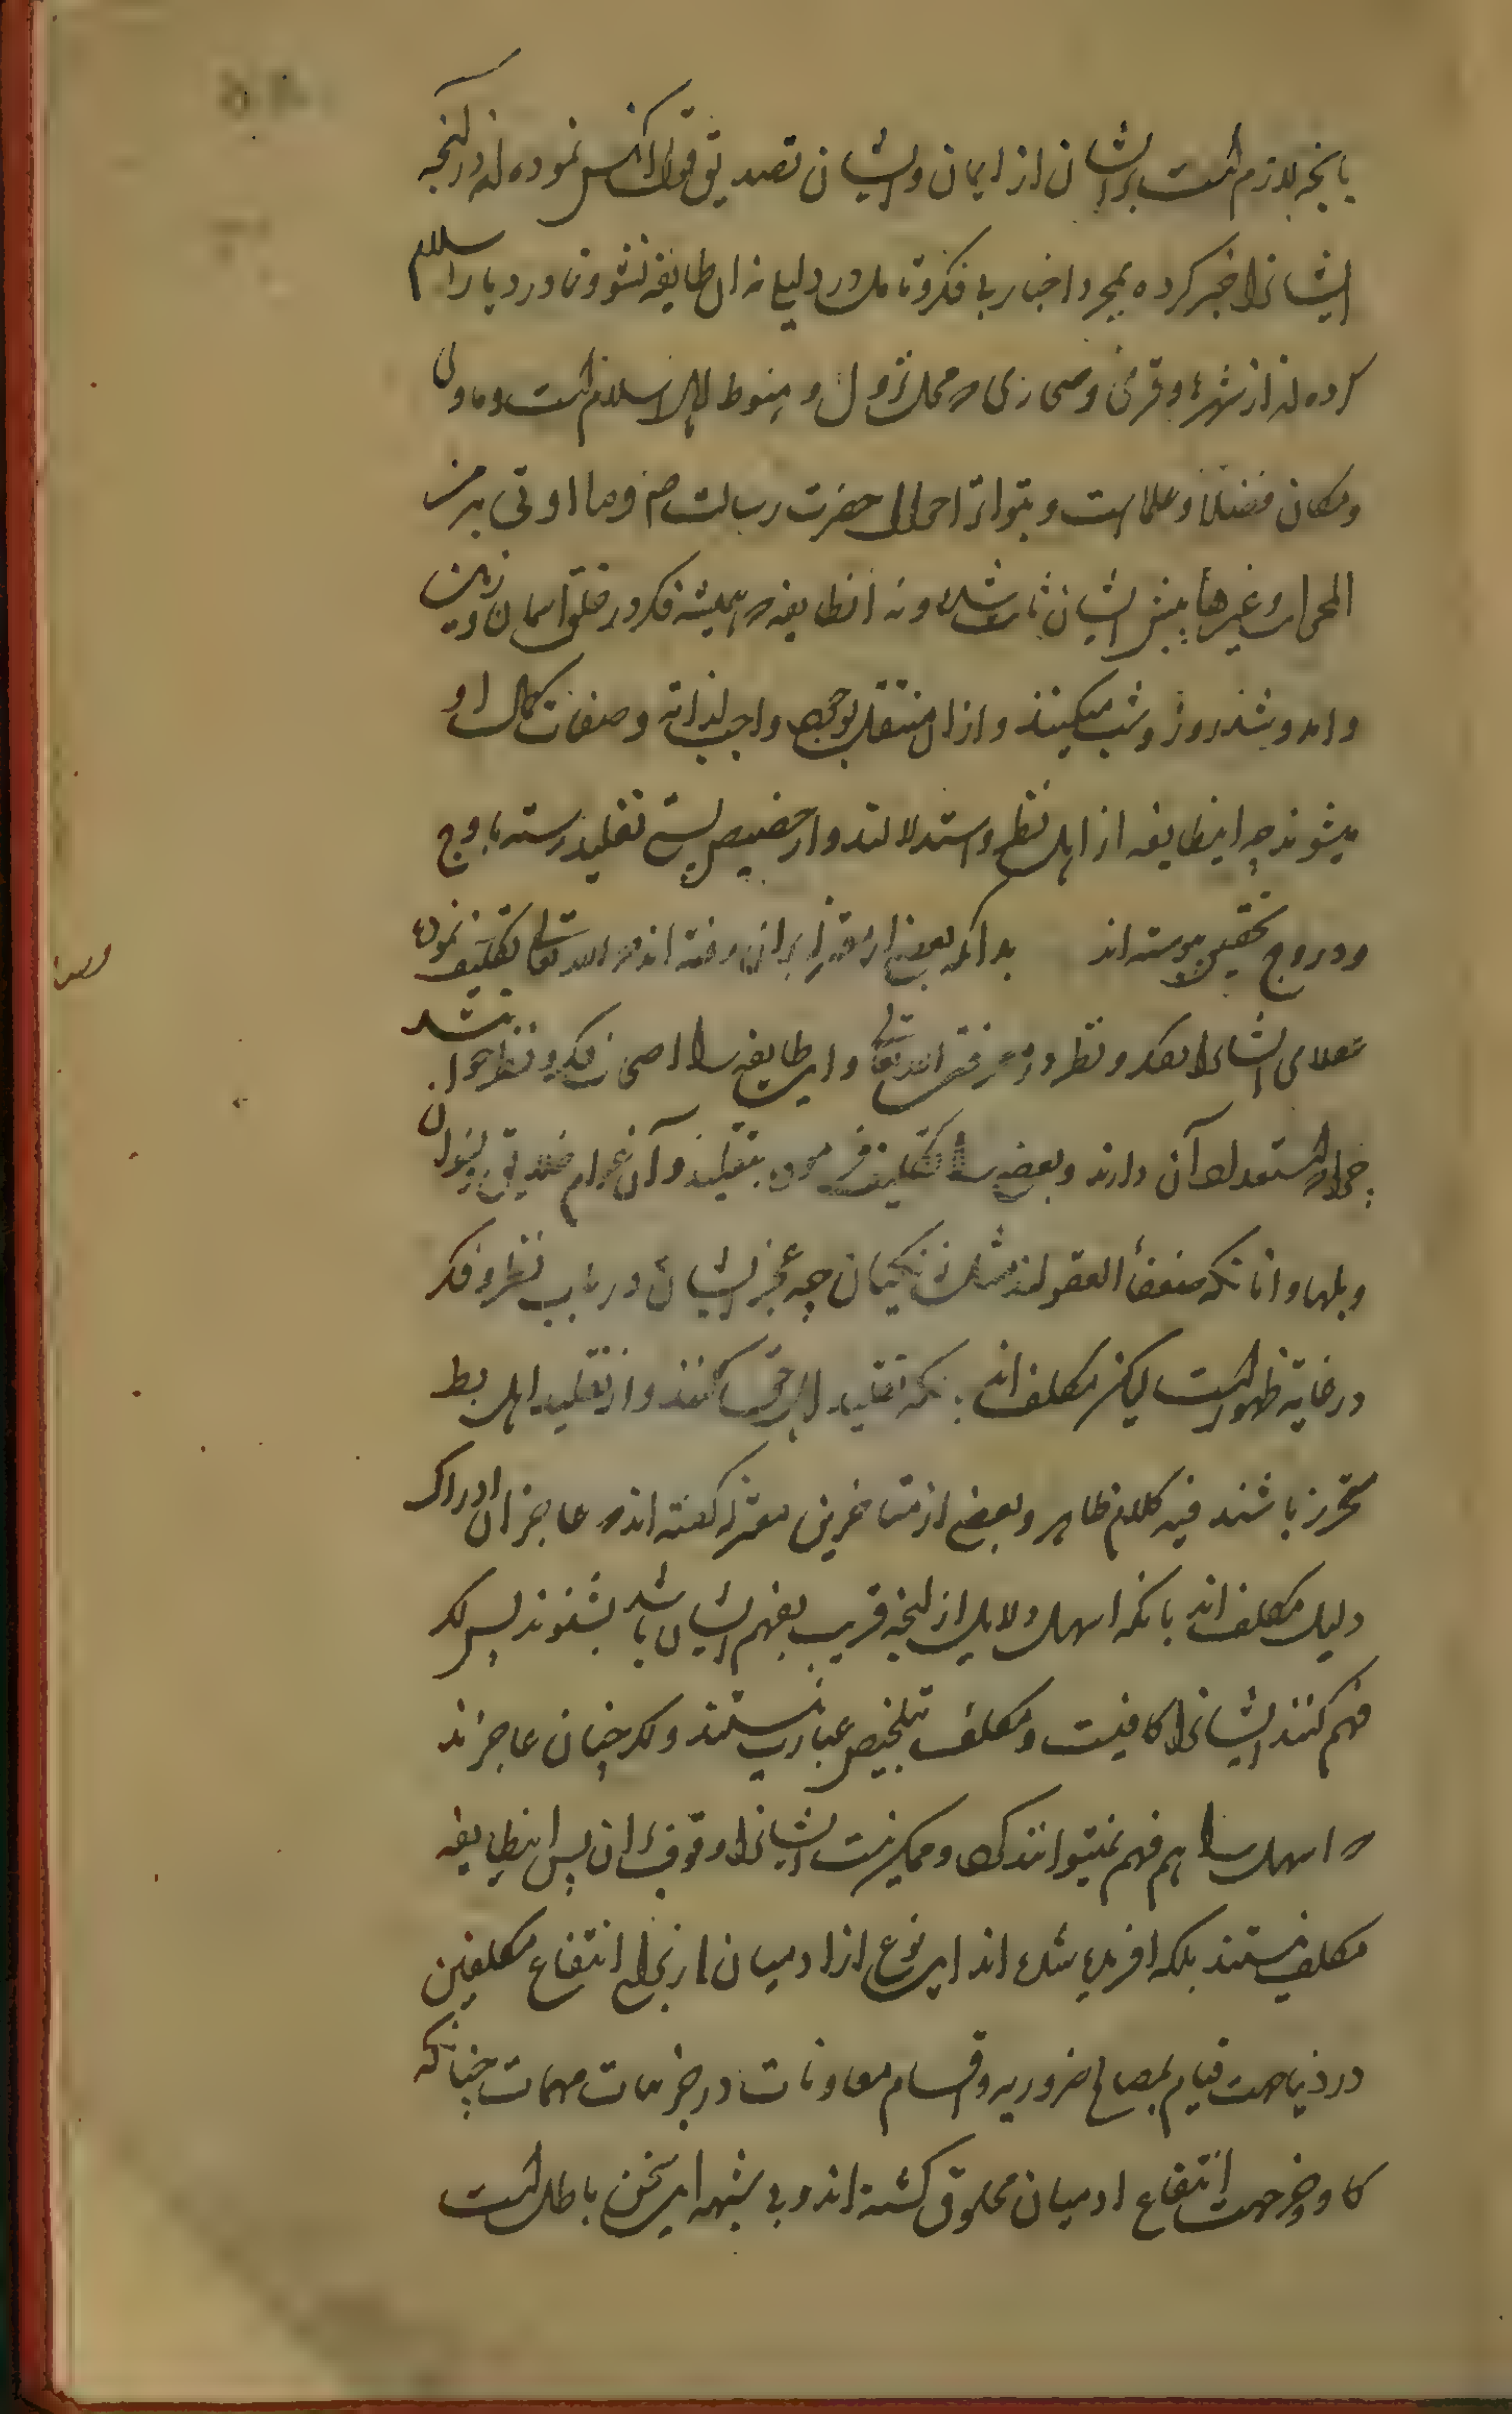 بانچه لازم است بر ایشان از ایمان و ایشان تصدیق قول آنکس نموده اند در آنچه
ایشانرا خبر کرده بمجرد اخبار بی فکر و تامل در دلیل نه ان طایفه نشو و نما در دیار اسلام
کرده اند از شهرها و قری و صحاری که محل نزول و منوط اهل اسلام است و ماوی
و مکان فضلا و علما است و بتواتر احوال حضرت رسالت صم و ما اوتی به من
المعجزات و غیرها پیش ایشان ثابت شده و نه انطایفه که همیشه فکر در خلق اسمان و زمین
و امد و شد روز و شب میکنند و از ان منتقل بوجود واجب لذاته و صفات کمال او
میشوند چه اینطایفه از اهل نظر و استدلالند و از حضیض پستی تقلید رسته باوج
و دروج تحقیق پیوسته اند بدانکه بعضی از معتزله بر ان رفته اند که الله تعالی تکلیف نموده
عقلای ایشانرا بفکر و نظر در معرفة الله تعالی و این طایفه را اصحاب فکر و نظر خوانند
چرا که استعداد آن دارند و بعضی را تکلیف فرموده بتقلید و آن عوام
و بلها و انانکه ضعفأ العقولند مثل زنکیان چه عجز ایشان در باب نظر و فکر
در غایة ظهور است لیکن مکلف اند بانکه تقلید اهل حق کنند و از تقلید اهل بط
محترز باشند فیه کلام ظاهر و بعضی از متاخرین معتزله کفته اند که عاجزان ادراک
دلیل مکلف اند بانکه اسهل دلایل از انچه قریب بفهم ایشان باشد بشنوند پس اکر
فهم کنند ایشانرا کافیست و مکلف بتلخیص عبارت نیستند و اکر چنان عاجزند
که اسهل را هم فهم نمیتوانند کرد و ممکن نیست ایشانرا وقوف بر ان پس اینطایفه
مکلف نیستند بلکه افریده شده اند این نوع از ادمیان از برای انتفاع مکلفین
در دنیا جهت قیام بمصالح ضروریه و اقسام معاونات در جزییات مهمات چنانکه
کاو و خر جهت انتفاع ادمیان مخلوق کشته اند و بی شبهه این سخن باطل است